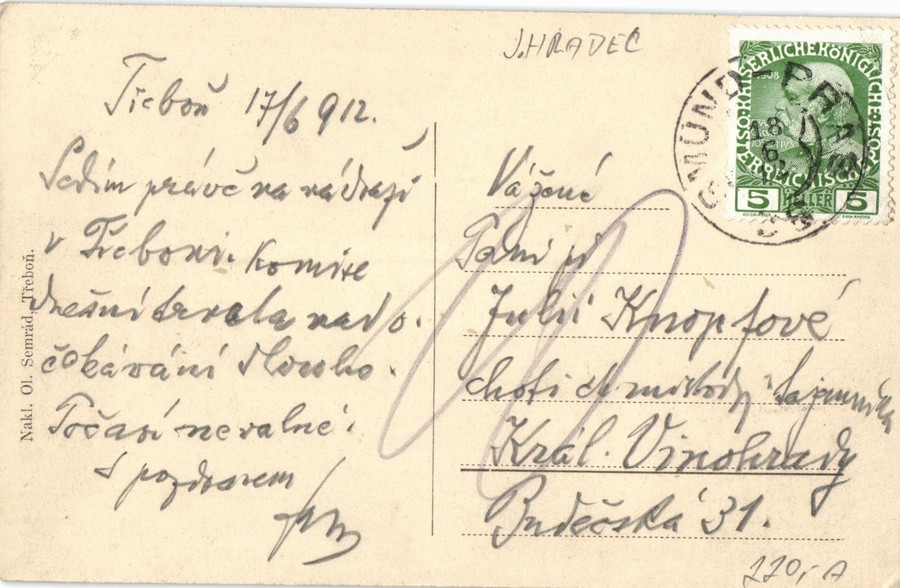 J. HRADEC
Třeboň 17/6 912.
Sedím právě na nádraží
v Třeboni. Komise
dnešní trvala nad o-
čekávání dlouho.
Počasí nevalné.
S pozdravem
Nakl. Ol. Semrád, Třeboň.
Vážené
Paní pí
Julii Knopfové
choti místod. tajemníka
Král. Vinohrady
Budečská 31.
KAISERLICHE KÖNIGLICHE ÖSTERREICHISCHE POST
1908
5 HELLER 5
GMÜND PRAG
18
6
770,- A